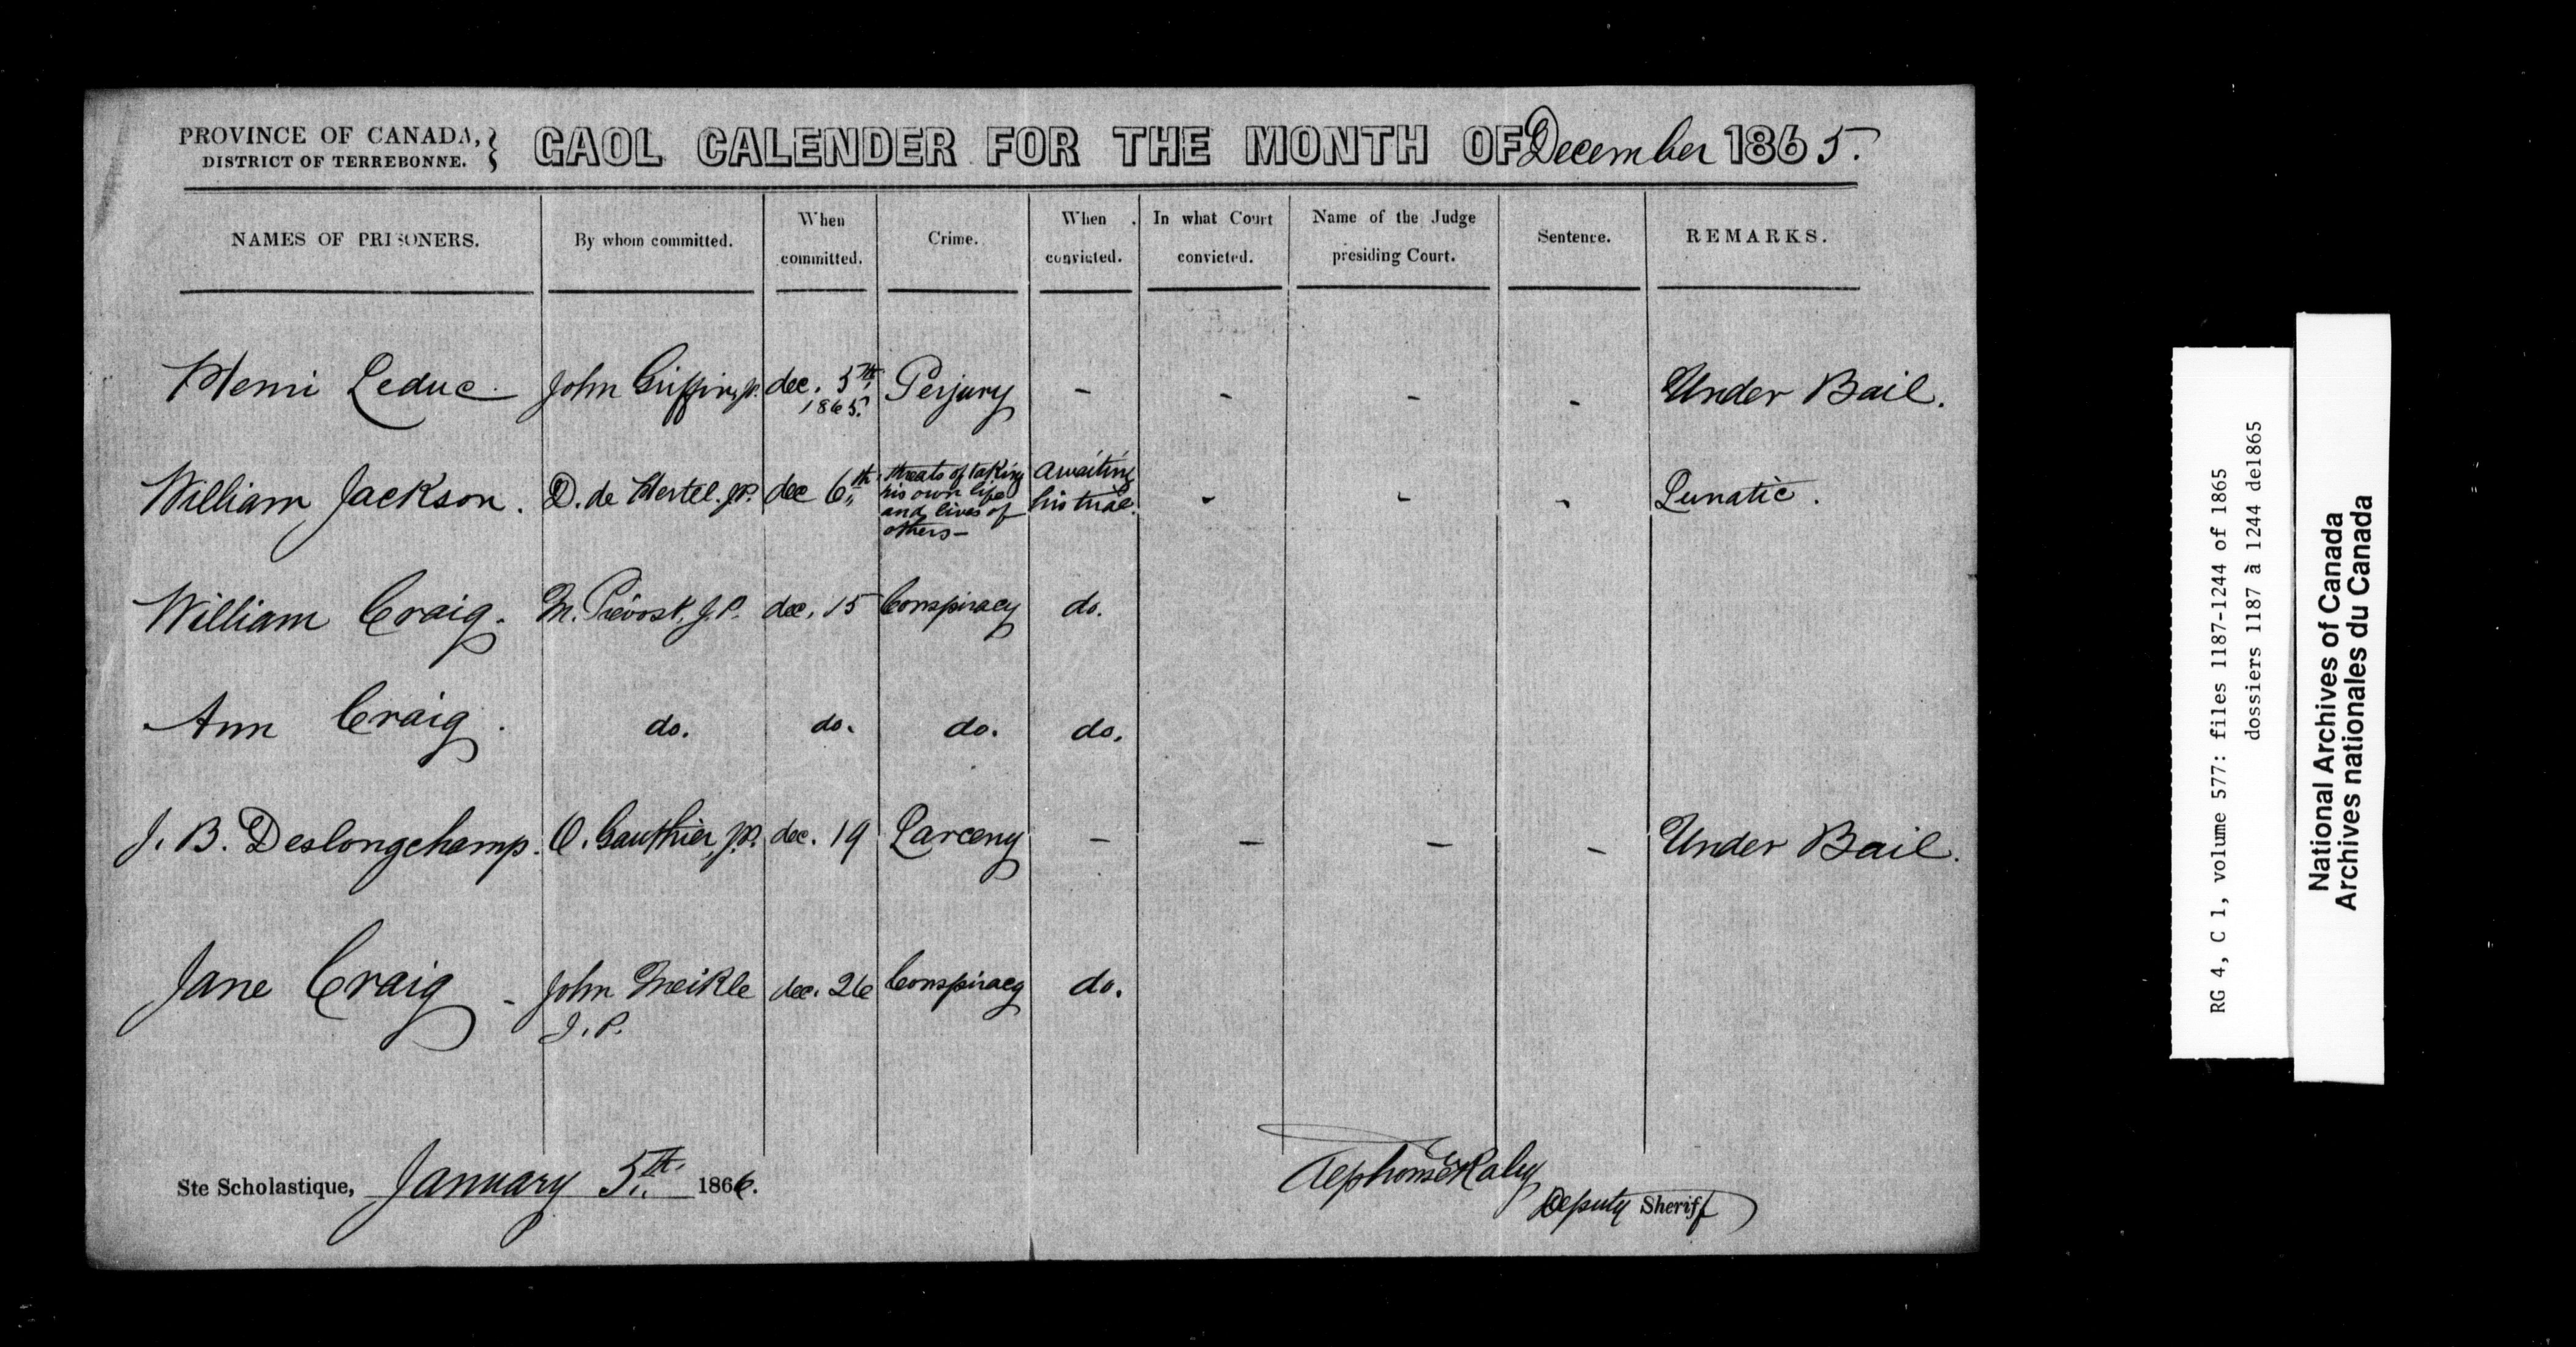 PROVINCE OF CANADA,
DISTRICT OF TERREBONNE.
GAOL CALENDER FOR THE MONTH OF December 1865.
NAMES OF PRISONERS. By whom committed. When committed. Crime. When convicted. In what Court convicted. Name of the Judge presiding Court. Sentence. REMARKS.
Henri Leduc. John Griffin, jp. dec. 5th, 1865. Perjury - - - - Under Bail.
William Jackson. D. de Hertel. JP. dec 6th, threats of taking his own life and lives of others — awaiting his trial. - - - Lunatic.
William Craig. M. Prévost, J.P. dec. 15 Conspiracy do.
Ann Craig. do. do. do. do.
J. B. Deslongchamp. O. Gauthier, J.P. dec. 19 Larceny - - - - Under Bail.
Jane Craig - John Meikle J.P. dec. 26 Conspiracy do.
Ste Scholastique, January 5th 1866.
Deputy Sheriff
RG 4, C 1, volume 577: files 1187-1244 of 1865
dossiers 1187 à 1244 de1865
National Archives of Canada
Archives nationales du Canada